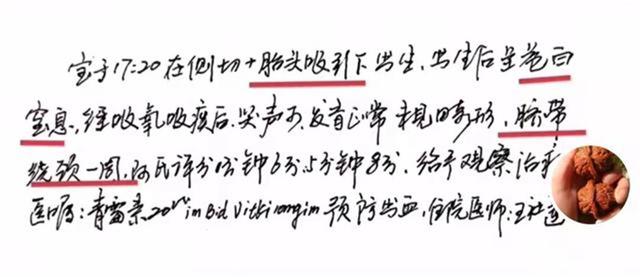 宝于17:20在侧切+胎头吸引下出生,出生后呈苍白
窒息,经吸氧吸痰后,哭声可,发育正常 未见畸形,脐带
绕颈一周,阿氏评分1分钟6分,5分钟8分,给予观察治
医嘱:青霉素20 im Bid Vitk1 im 预防出血,住院医师:王